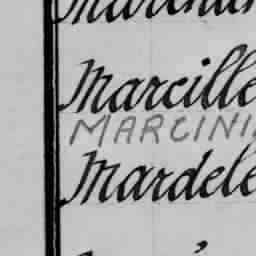 Marcille
MARCINI
Mardele